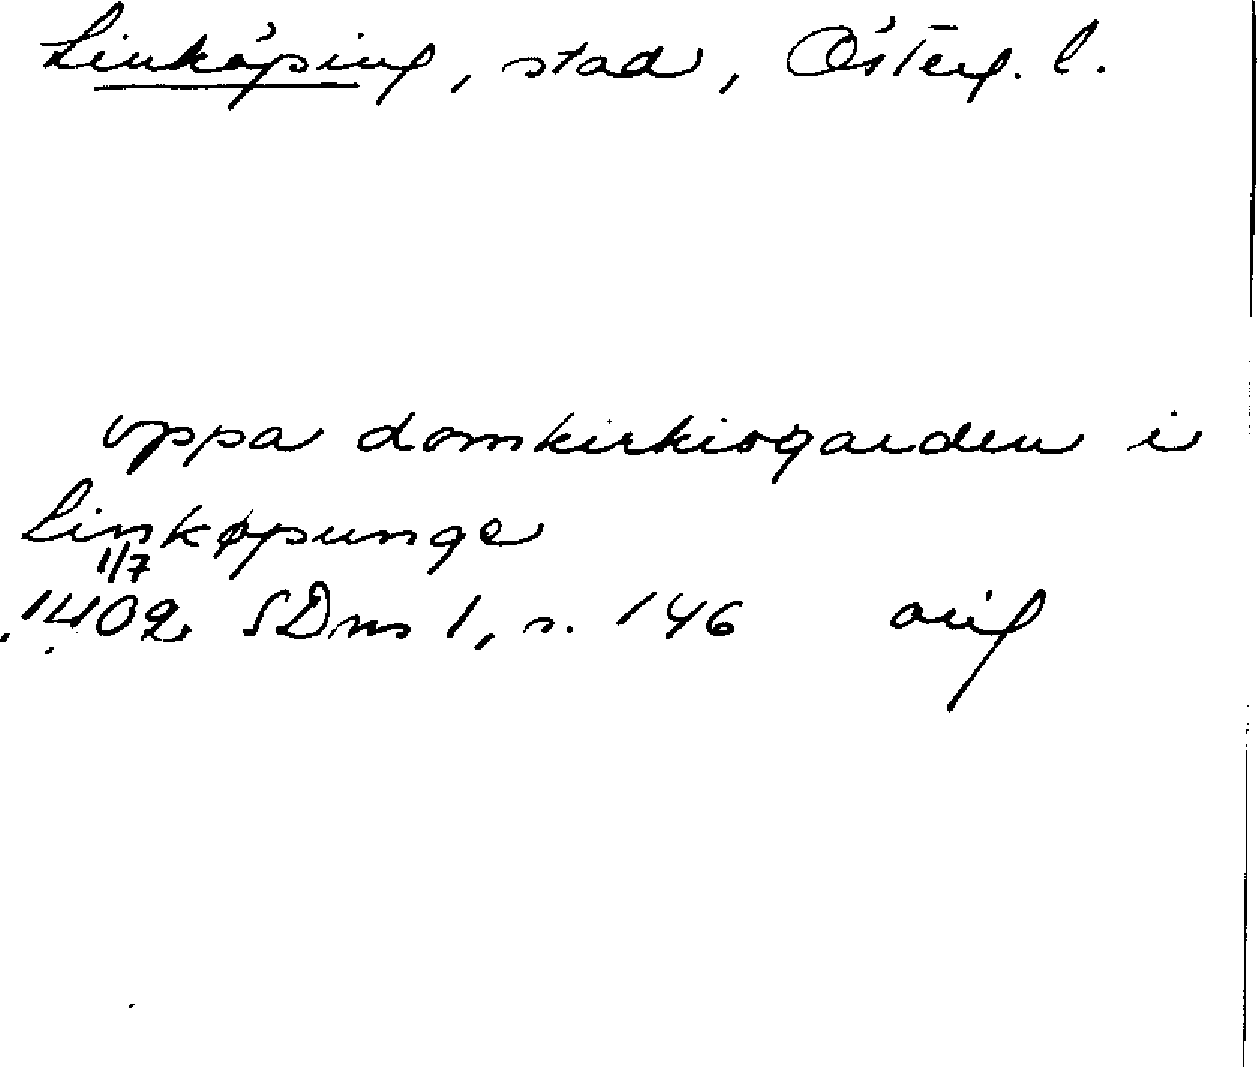 Linköping, stad, Österg. l.
vppa domkirkiogarden i
Linkøpunge
1/7
1402 SDns 1, s. 146 orig